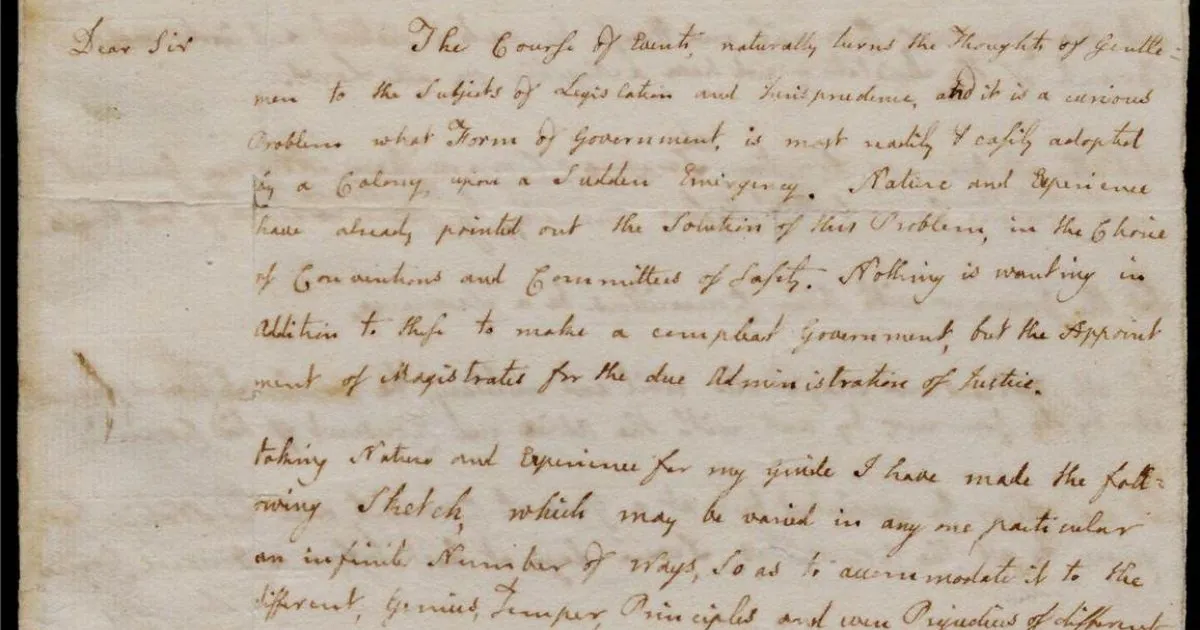 Dear Sir The Course of Events, naturally turns the Thoughts of Gentle=
men to the Subjects of Legislation and Jurisprudence, and it is a curious
Problem what Form of Government, is most readily & easily adopted
by a Colony, upon a Sudden Emergency. Nature and Experience
have already pointed out the Solution of this Problem, in the Choice
of Conventions and Committees of Safety. Nothing is wanting in
Addition to these to make a compleat Government, but the Appoint
ment of Magistrates for the due Administration of Justice.
taking Nature and Experience for my Guide I have made the foll=
owing Sketch, which may be varied in any one particular
an infinite Number of Ways, So as to accommodate it to the
different, Genius, Temper, Principles and even Prejudices of different